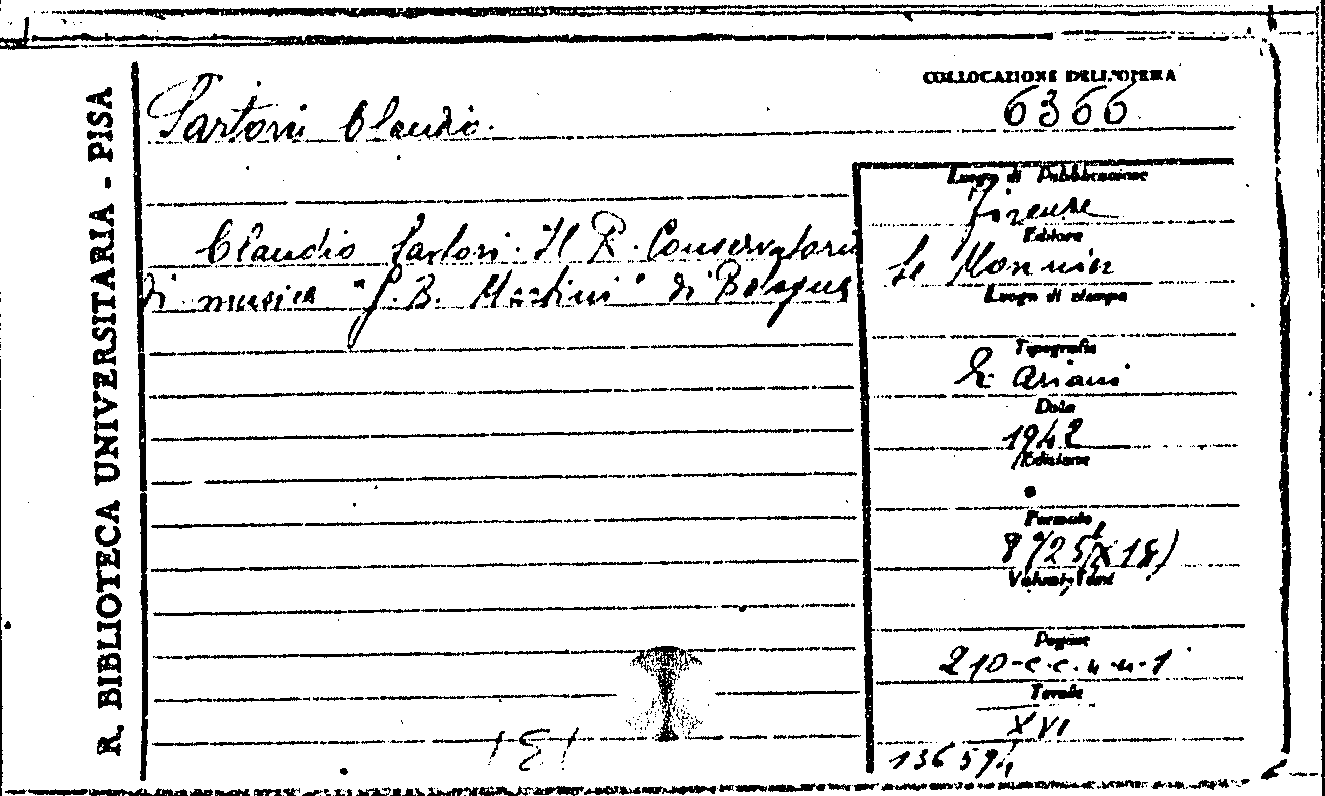 R. BIBLIOTECA UNIVERSITARIA - PISA
COLLOCAZIONE DELL'OPERA
6366
Sartori Claudio.
Claudio Sartori. Il R. Conservatorio
di musica "G. B. Martini" di Bologna
Luogo di Pubblicazione
Firenze
Editore
Le Monnier
Luogo di stampa
Tipografia
E. Ariani
Data
1942
Edizione
Formato
8°(25 x 18)
Volumi, Tomi
Pagine
210-c.c.n.n-1
Tavole
XVI
136594